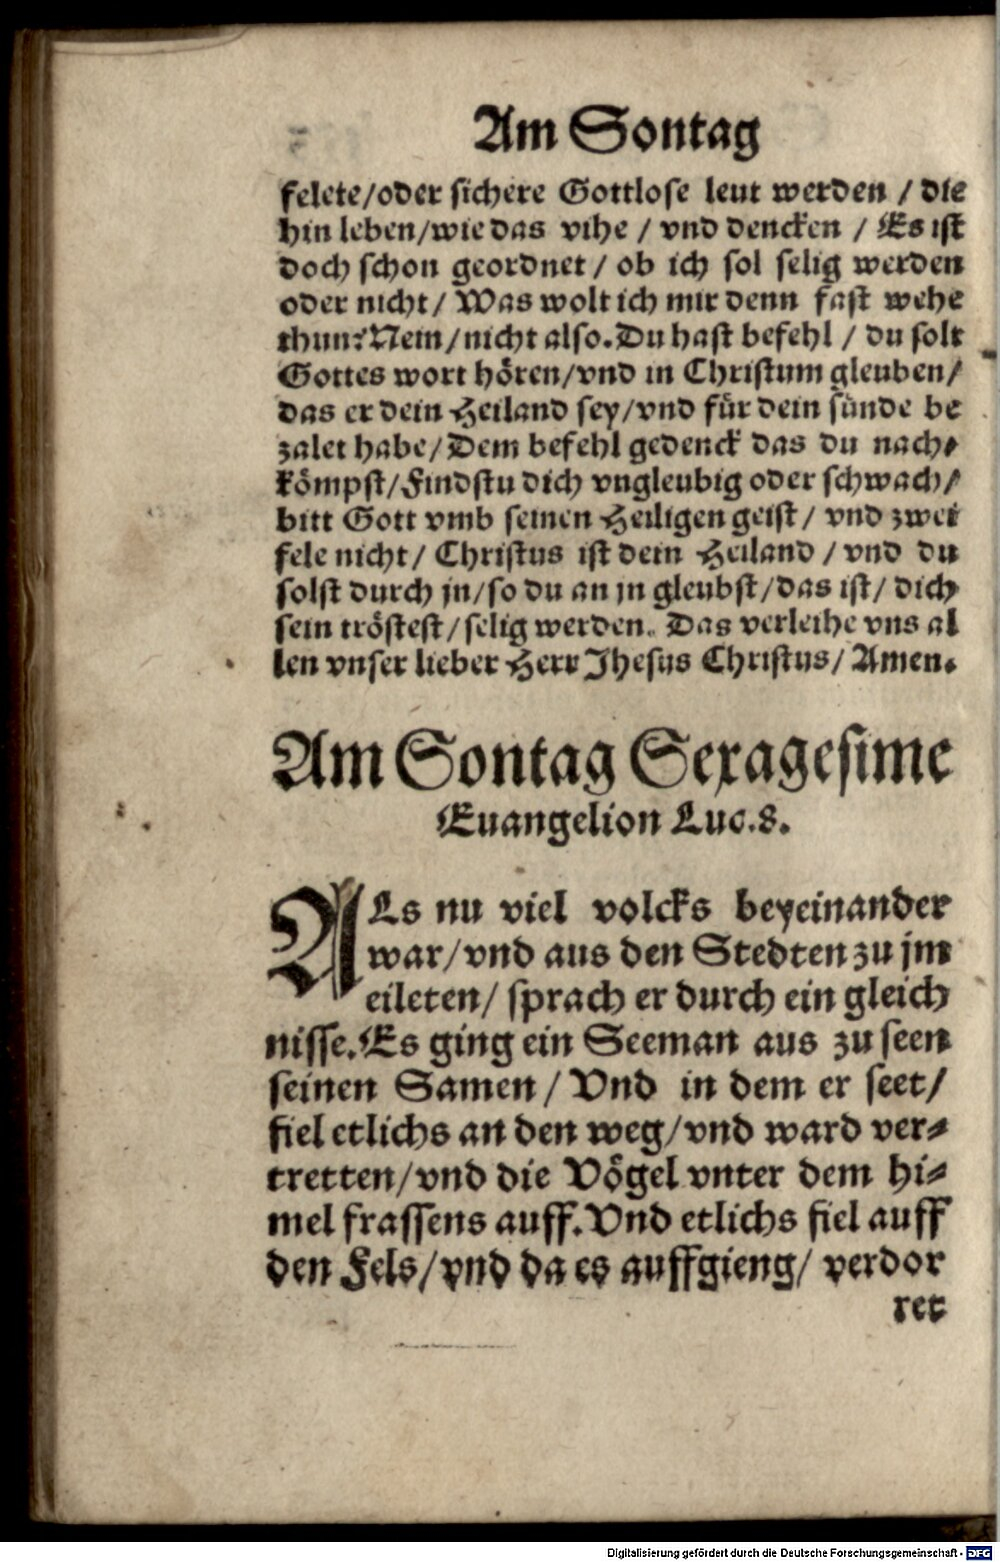 Am Sontag
felete/oder sichere Gottlose leut werden / die
hin leben/wie das vihe / vnd dencken / Es ist
doch schon geordnet / ob ich sol selig werden
oder nicht / Was wolt ich mir denn fast wehe
thun? Nein/nicht also. Du hast befehl / du solt
Gottes wort hören/vnd in Christum gleuben/
das er dein Heiland sey/vnd für dein sünde be
zalet habe/Dem befehl gedenck das du nach⸗
kömpst/Findstu dich vngleubig oder schwach/
bitt Gott vmb seinen Heiligen geist / vnd zwei
fele nicht / Christus ist dein Heiland / vnd du
solst durch jn/so du an jn gleubst/das ist/ dich
sein tröstest/selig werden. Das verleihe vns al
len vnser lieber Herr Jhesus Christus/ Amen.
Am Sontag Sexagesime
Euangelion Luc.8.
ALs nu viel volcks beyeinander
war/vnd aus den Stedten zu jm
eileten/ sprach er durch ein gleich
nisse. Es ging ein Seeman aus zu seen
seinen Samen / Vnd in dem er seet/
fiel etlichs an den weg/vnd ward ver⸗
tretten/vnd die Vögel vnter dem hi⸗
mel frassens auff. Vnd etlichs fiel auff
den Fels/vnd da es auffgieng/ verdor
ret
Digitalisierung gefördert durch die Deutsche Forschungsgemeinschaft - DFG